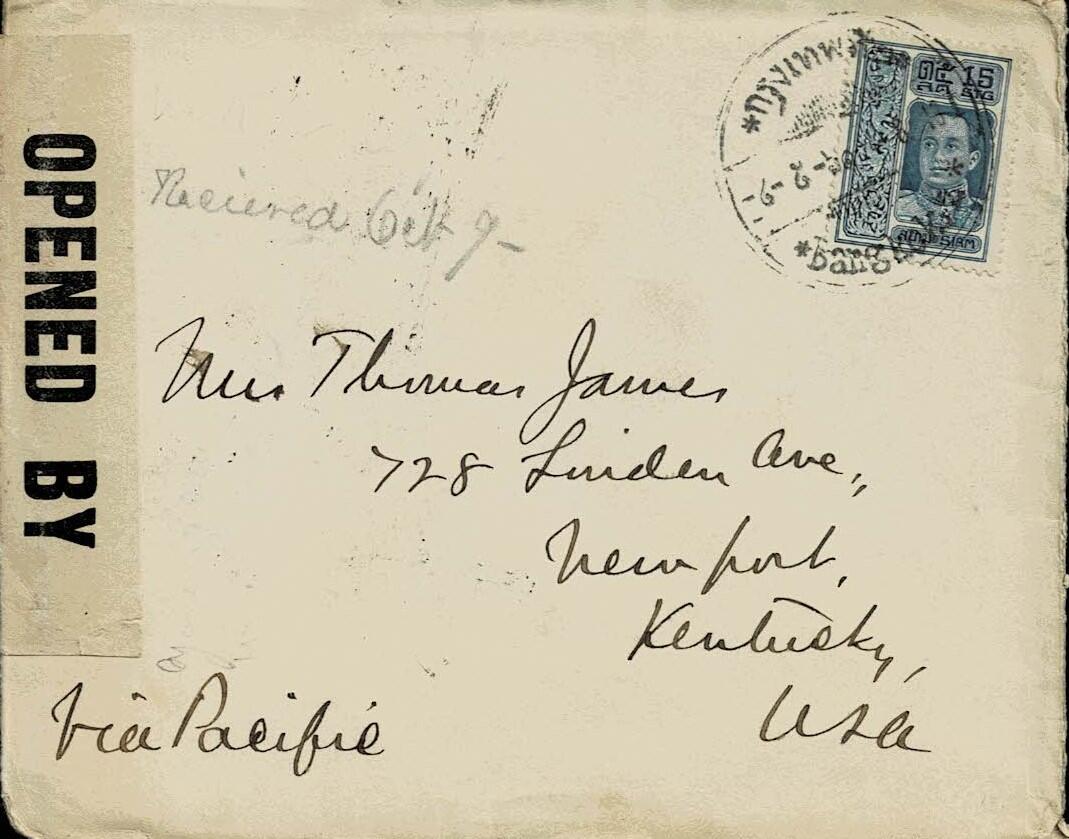 OPENED BY
๑๕ 15
STG
สยาม SIAM
*กรุงเทพ
*Bang
Recieved Oct 9-
Mrs Thomas James
728 Linden Ave.,
Newport,
Kentucky,
USA
Via Pacific